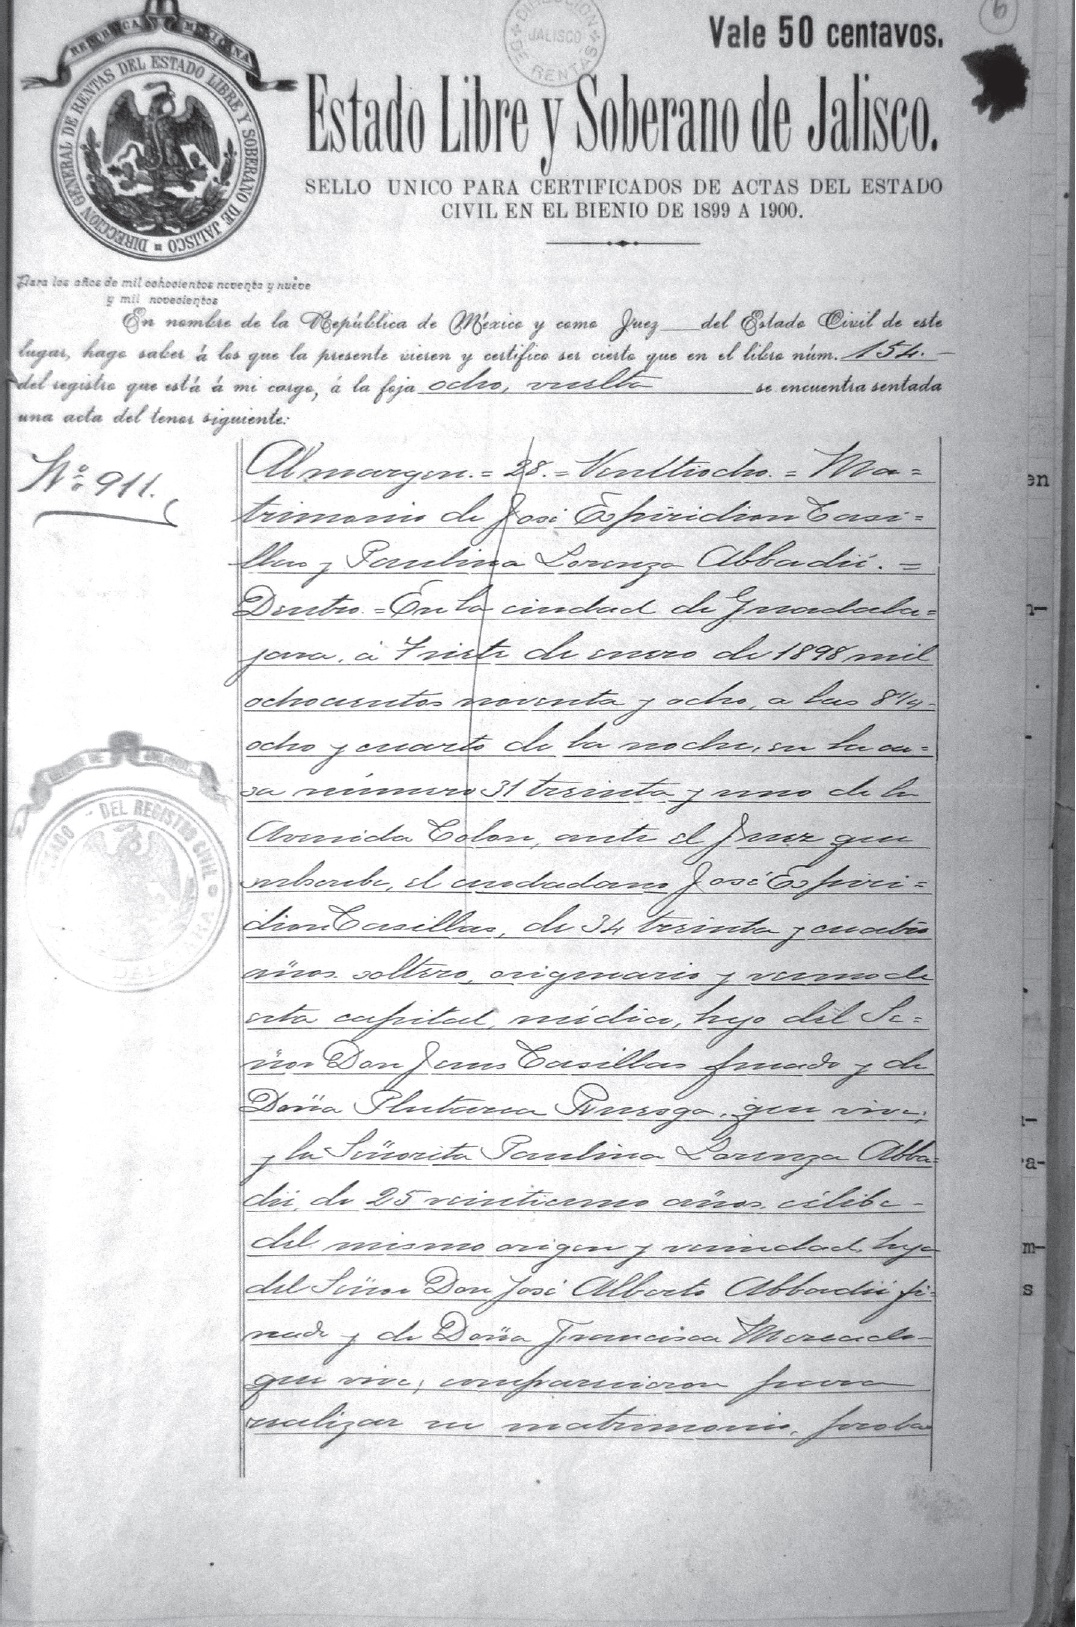 6
Vale 50 centavos.
REPUBLICA MEXICANA
DIRECCION GENERAL DE RENTAS DEL ESTADO LIBRE Y SOBERANO DE JALISCO
DIRECCION DE RENTAS
JALISCO
Estado Libre y Soberano de Jalisco.
SELLO UNICO PARA CERTIFICADOS DE ACTAS DEL ESTADO
CIVIL EN EL BIENIO DE 1899 A 1900.
Para los años de mil ochocientos noventa y nueve
y mil novecientos
En nombre de la República de México y como Juez del Estado Civil de este
lugar, hago saber á los que la presente vieren y certifico ser cierto que en el libro núm. 154.
del registro que está á mi cargo, á la foja ocho, vuelta se encuentra sentada
una acta del tenor siguiente:
No. 911.
Al margen.=28.=Veintiocho.=Ma=
trimonio de José Espiridion Casi=
llas y Paulina Lorenza Abbadié.=
Dentro.=En la ciudad de Guadala=
jara, á 7 siete de enero de 1898 mil
ochocientos noventa y ocho, a las 8 1/4
ocho y cuarto de la noche, en la ca=
sa número 31 treinta y uno de la
Avenida Colon, ante el Juez que
subscribe, el ciudadano José Espiri=
dion Casillas, de 34 treinta y cuatro
años soltero, originario y vecino de
esta capital, médico, hijo del Se=
ñor Don Jesus Casillas finado y de
Doña Plutarca que vive;
y la Señorita Paulina Lorenza Abba=
dié, de 25 veinticinco años, célibe
del mismo origen y vecindad, hija
del Señor Don José Alberto Abbadié fi=
nado y de Doña Francisca Mercado
que vive; comparecieron para
realizar su matrimonio, proba
DEL REGISTRO CIVIL
en
n-
-
a-
m-
s